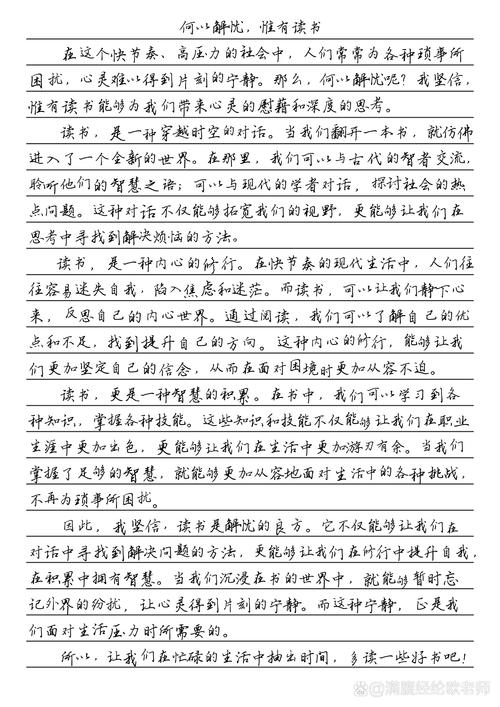 何以解忧，惟有读书
在这个快节奏、高压力的社会中，人们常常为各种琐事所
困扰，心灵难以得到片刻的宁静。那么，何以解忧呢？我坚信，
惟有读书能够为我们带来心灵的慰藉和深度的思考。
读书，是一种穿越时空的对话。当我们翻开一本书，就仿佛
进入了一个全新的世界。在那里，我们可以与古代的智者交流，
聆听他们的智慧之语；可以与现代的学者对话，探讨社会的热
点问题。这种对话不仅能够拓宽我们的视野，更能够让我们在
思考中寻找到解决烦恼的方法。
读书，是一种内心的修行。在快节奏的现代生活中，人们往
往容易迷失自我，陷入焦虑和迷茫。而读书，可以让我们静下心
来，反思自己的内心世界。通过阅读，我们可以了解自己的优
点和不足，找到提升自己的方向。这种内心的修行，能够让我
们更加坚定自己的信念，从而在面对困境时更加从容不迫。
读书，更是一种智慧的积累。在书中，我们可以学习到各
种知识，掌握各种技能。这些知识和技能不仅能够让我们在职业
生涯中更加出色，更能够让我们在生活中更加游刃有余。当我们
掌握了足够的智慧，就能够更加从容地面对生活中的各种挑战，
不再为琐事所困扰。
因此，我坚信，读书是解忧的良方。它不仅能够让我们在
对话中寻找到解决问题的方法，更能够让我们在修行中提升自我，
在积累中拥有智慧。当我们沉浸在书的世界中，就能够暂时忘
记外界的纷扰，让心灵得到片刻的宁静。而这种宁静，正是我
们面对生活压力时所需要的。
所以，让我们在忙碌的生活中抽出时间，多读一些好书吧！
@满腹经纶欧老师